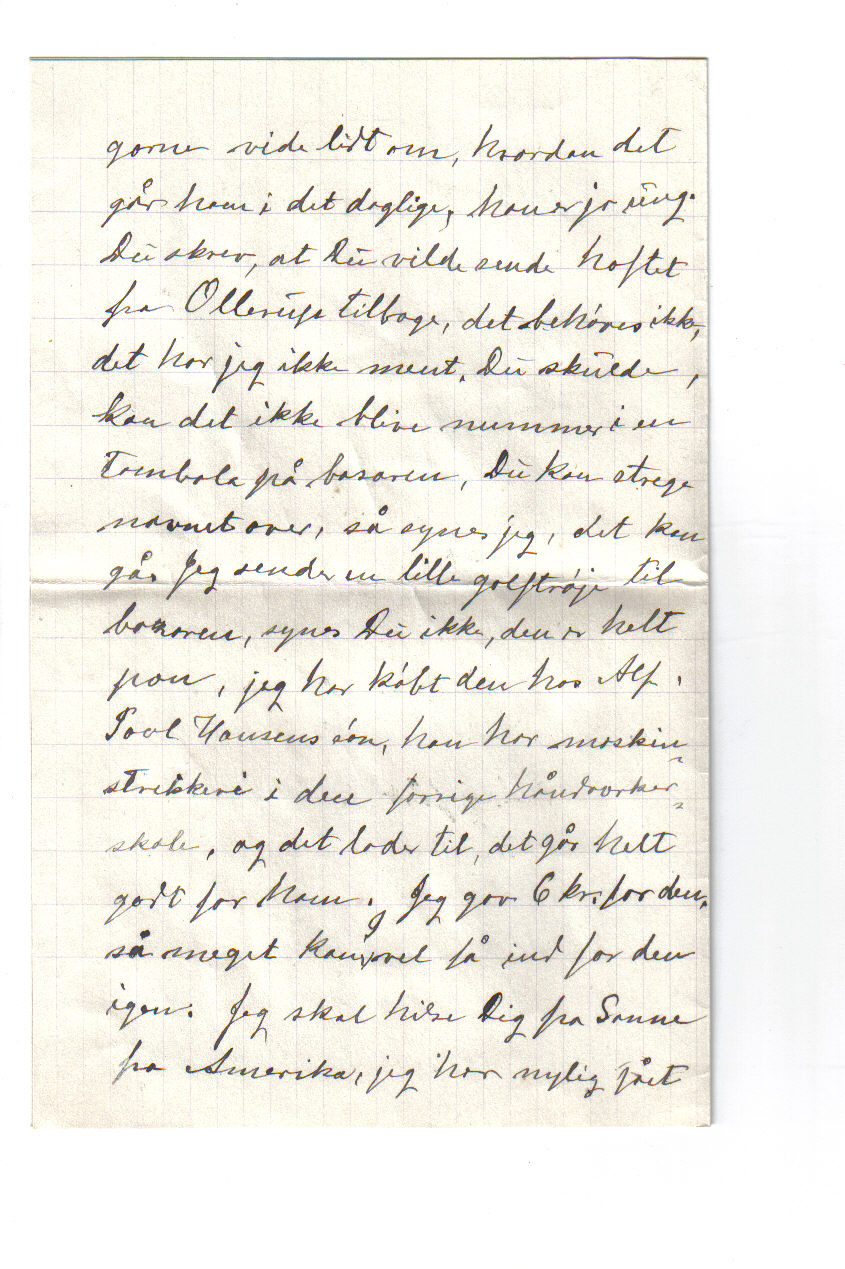 gærne vide lidt om, hvordan det
går ham i det daglige, han er jo ung.
Du skrev, at Du vilde sende hæftet
fra Ollerup tilbage, det behøves ikke,
det har jeg ikke ment, Du skulde,
kan det ikke blive nummer i en
Tombola på basaren, Du kan strege
navnet over, så synes jeg, det kan
gå. Jeg sender en lille golftrøje til
bazaren, synes Du ikke, den er helt
pæn, jeg har købt den hos Alf.
Povl Hansens søn, han har maskin-
strikkeri i den forrige håndværker-
skole, og det lader til, det går helt
godt for ham. Jeg gav 6 kr. for den,
så meget kan I vel få ind for den
igen. Jeg skal hilse Dig fra Sanne
fra Amerika, jeg har nylig fået